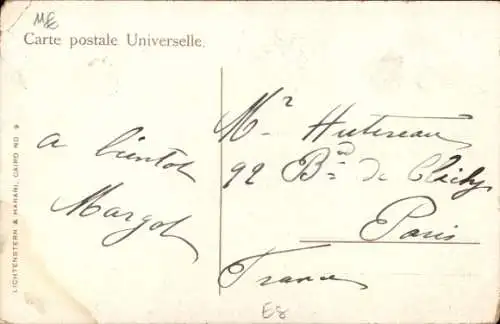 Carte postale Universelle.
a bientot
Margot
Mr Hutereau
92 Bd de Clichy
Paris
France
E8
LICHTENSTERN & HARARI, CAIRO NO 9